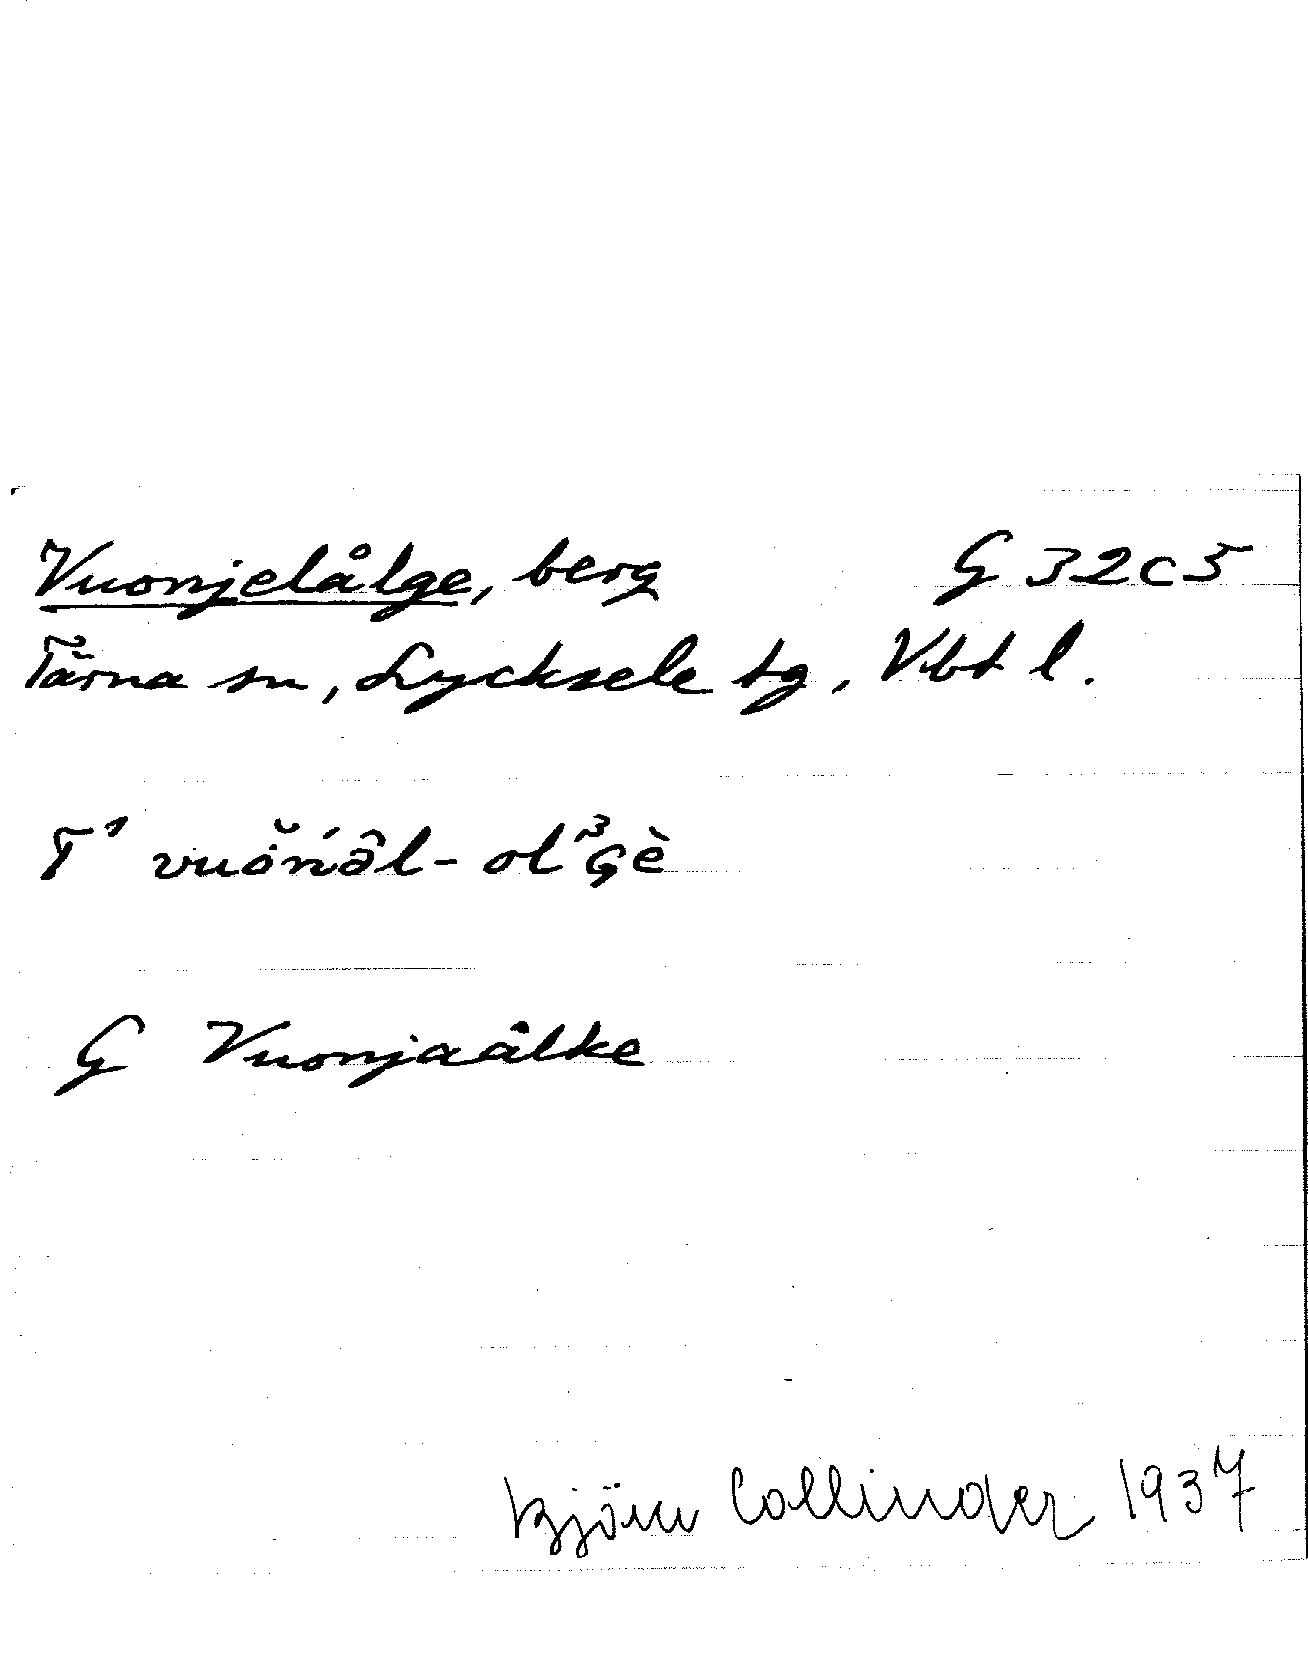 Vuonjelålge, berg G 32c5
Tärna sn, Lycksele tg, Vbt l.
T¹ vuȯ̆ńə̂l- ol³Gè
G Vuonjaålke
Björn Collinder 1937